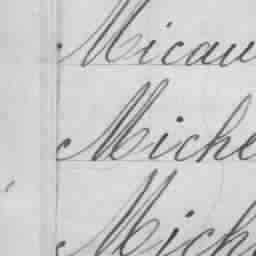 Micau
Miche
Mich